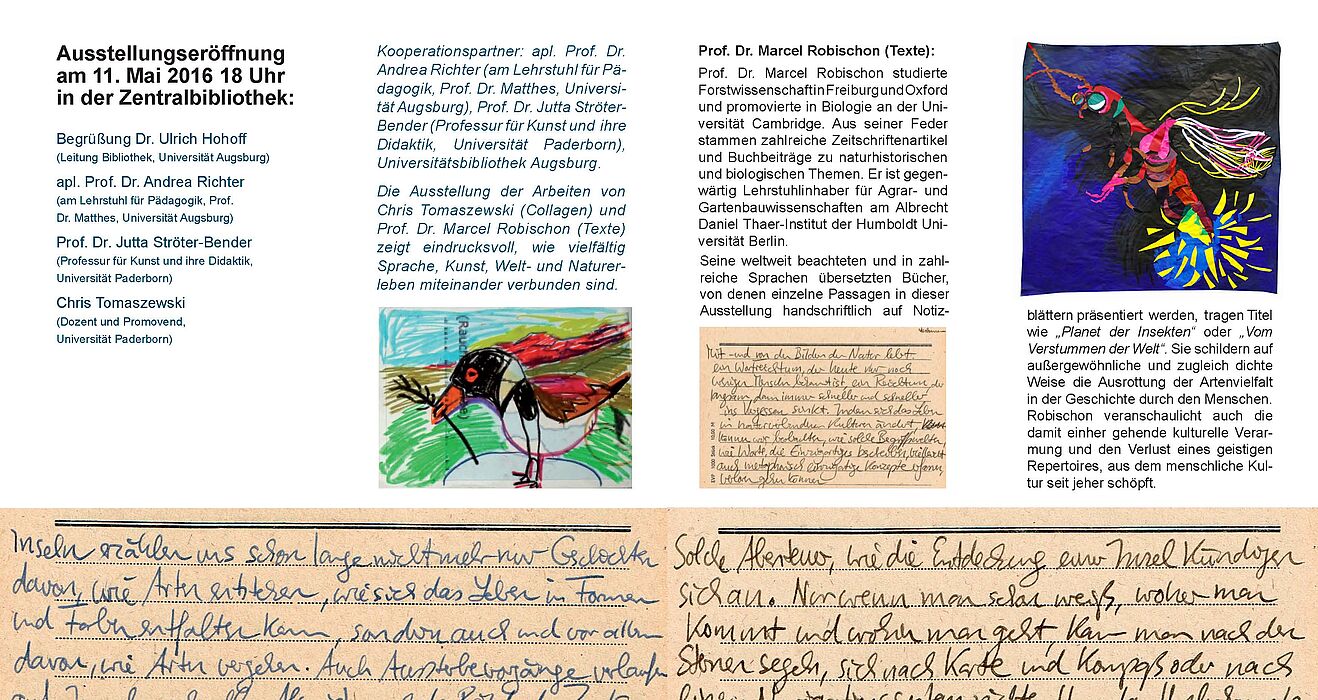 Ausstellungseröffnung
am 11. Mai 2016 18 Uhr
in der Zentralbibliothek:
Begrüßung Dr. Ulrich Hohoff
(Leitung Bibliothek, Universität Augsburg)
apl. Prof. Dr. Andrea Richter
(am Lehrstuhl für Pädagogik, Prof.
Dr. Matthes, Universität Augsburg)
Prof. Dr. Jutta Ströter-Bender
(Professur für Kunst und ihre Didaktik,
Universität Paderborn)
Chris Tomaszewski
(Dozent und Promovend,
Universität Paderborn)
Kooperationspartner: apl. Prof. Dr.
Andrea Richter (am Lehrstuhl für Pä-
dagogik, Prof. Dr. Matthes, Universi-
tät Augsburg), Prof. Dr. Jutta Ströter-
Bender (Professur für Kunst und ihre
Didaktik, Universität Paderborn),
Universitätsbibliothek Augsburg.
Die Ausstellung der Arbeiten von
Chris Tomaszewski (Collagen) und
Prof. Dr. Marcel Robischon (Texte)
zeigt eindrucksvoll, wie vielfältig
Sprache, Kunst, Welt- und Naturer-
leben miteinander verbunden sind.
Prof. Dr. Marcel Robischon (Texte):
Prof. Dr. Marcel Robischon studierte
Forstwissenschaft in Freiburg und Oxford
und promovierte in Biologie an der Uni-
versität Cambridge. Aus seiner Feder
stammen zahlreiche Zeitschriftenartikel
und Buchbeiträge zu naturhistorischen
und biologischen Themen. Er ist gegen-
wärtig Lehrstuhlinhaber für Agrar- und
Gartenbauwissenschaften am Albrecht
Daniel Thaer-Institut der Humboldt Uni-
versität Berlin.
Seine weltweit beachteten und in zahl-
reiche Sprachen übersetzten Bücher,
von denen einzelne Passagen in dieser
Ausstellung handschriftlich auf Notiz-
Mit und von den Bildern der Natur lebt
ein Wortreichtum, der heute nur noch
wenigen Menschen bekannt ist, ein Reichtum, der
langsam, dann immer schneller und schneller
ins Vergessen sinkt. Indem sich das Leben
in naturverbundenen Kulturen ändert,
können wir beobachten, wie solche Begriffswelten,
wie Worte, die Einzigartiges beschreiben, vielleicht
auch metaphorisch einzigartige Konzepte
verloren gehen können
blättern präsentiert werden, tragen Titel
wie „Planet der Insekten“ oder „Vom
Verstummen der Welt“. Sie schildern auf
außergewöhnliche und zugleich dichte
Weise die Ausrottung der Artenvielfalt
in der Geschichte durch den Menschen.
Robischon veranschaulicht auch die
damit einher gehende kulturelle Verar-
mung und den Verlust eines geistigen
Repertoires, aus dem menschliche Kul-
tur seit jeher schöpft.
Inseln erzählen uns schon lange nicht mehr nur Geschichten
davon, wie Arten entstehen, wie sich das Leben in Formen
und Farben entfalten kann, sondern auch und vor allem
davon, wie Arten vergehen. Auch Aussterbevorgänge verlaufen
Solche Abenteuer, wie die Entdeckung einer Insel kündigen
sich an. Nur wenn man schon weiß, woher man
kommt und wohin man geht, kann man nach den
Sternen segeln, sich nach Karte und Kompass oder nach